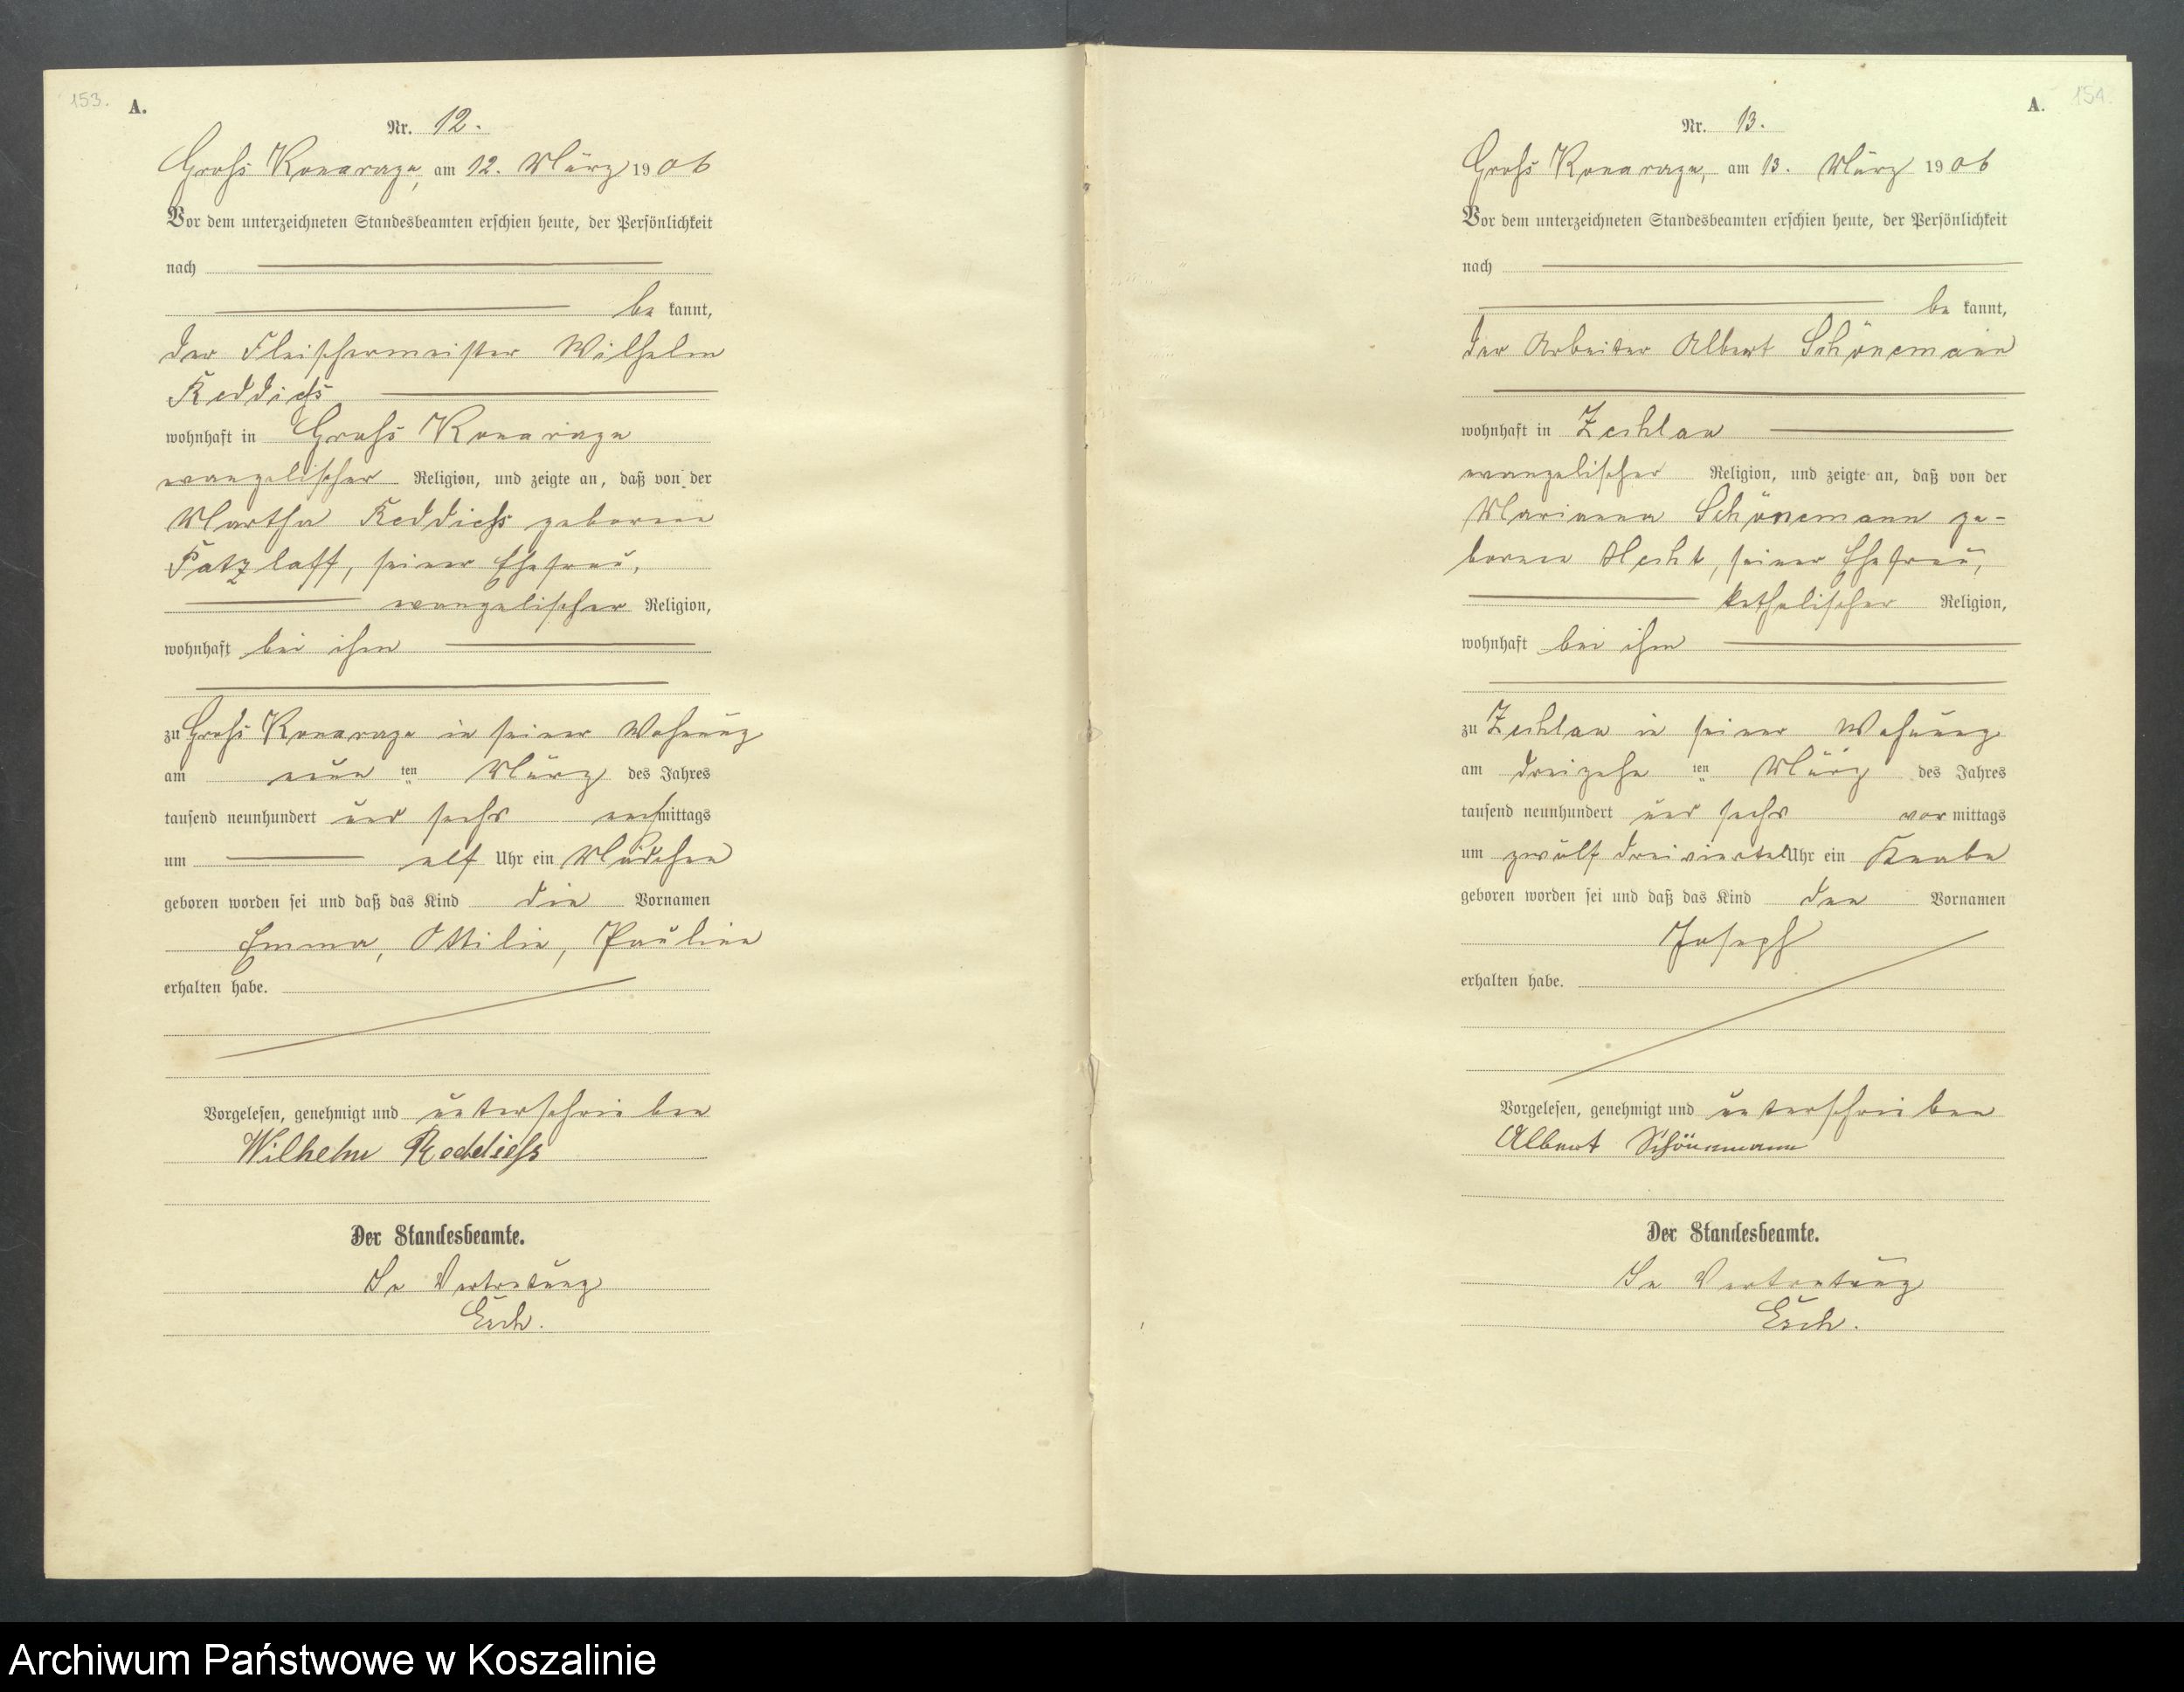 153.
A.
Nr. 12.
Groß Konarczyn, am 12. März 1906
Vor dem unterzeichneten Standesbeamten erschien heute, der Persönlichkeit
nach
be kannt,
der Fleischermeister Wilhelm
Reddieß
wohnhaft in Groß
evangelischer Religion, und zeigte an, daß von der
Martha Reddieß geborene
Ratzlaff, seiner Ehefrau,
evangelischer Religion,
wohnhaft bei ihm
zu Groß in seiner Wohnung
am neun ten März des Jahres
tausend neunhundert und sechs nachmittags
um elf Uhr ein Mädchen
geboren worden sei und daß das Kind die Vornamen
Emma, Ottilie, Pauline
erhalten habe.
Vorgelesen, genehmigt und unterschrieben
Wilhelm Reddieß
Der Standesbeamte.
In Vertretung
Esch.
A. 154.
Nr. 13.
Groß am 13. März 1906
Vor dem unterzeichneten Standesbeamten erschien heute, der Persönlichkeit
nach
be kannt,
der Arbeiter Albert Schönemann
wohnhaft in Zechlau
evangelischer Religion, und zeigte an, daß von der
Marianna Schönemann ge-
borene Hecht, seiner Ehefrau,
katholischer Religion,
wohnhaft bei ihm
zu Zechlau in seiner Wohnung
am dreizehn ten März des Jahres
tausend neunhundert und sechs vor mittags
um zwölf dreiviertel Uhr ein Knabe
geboren worden sei und daß das Kind den Vornamen
Joseph
erhalten habe.
Vorgelesen, genehmigt und unterschrieben
Albert Schönemann
Der Standesbeamte.
In Vertretung
Esch.
Archiwum Państwowe w Koszalinie